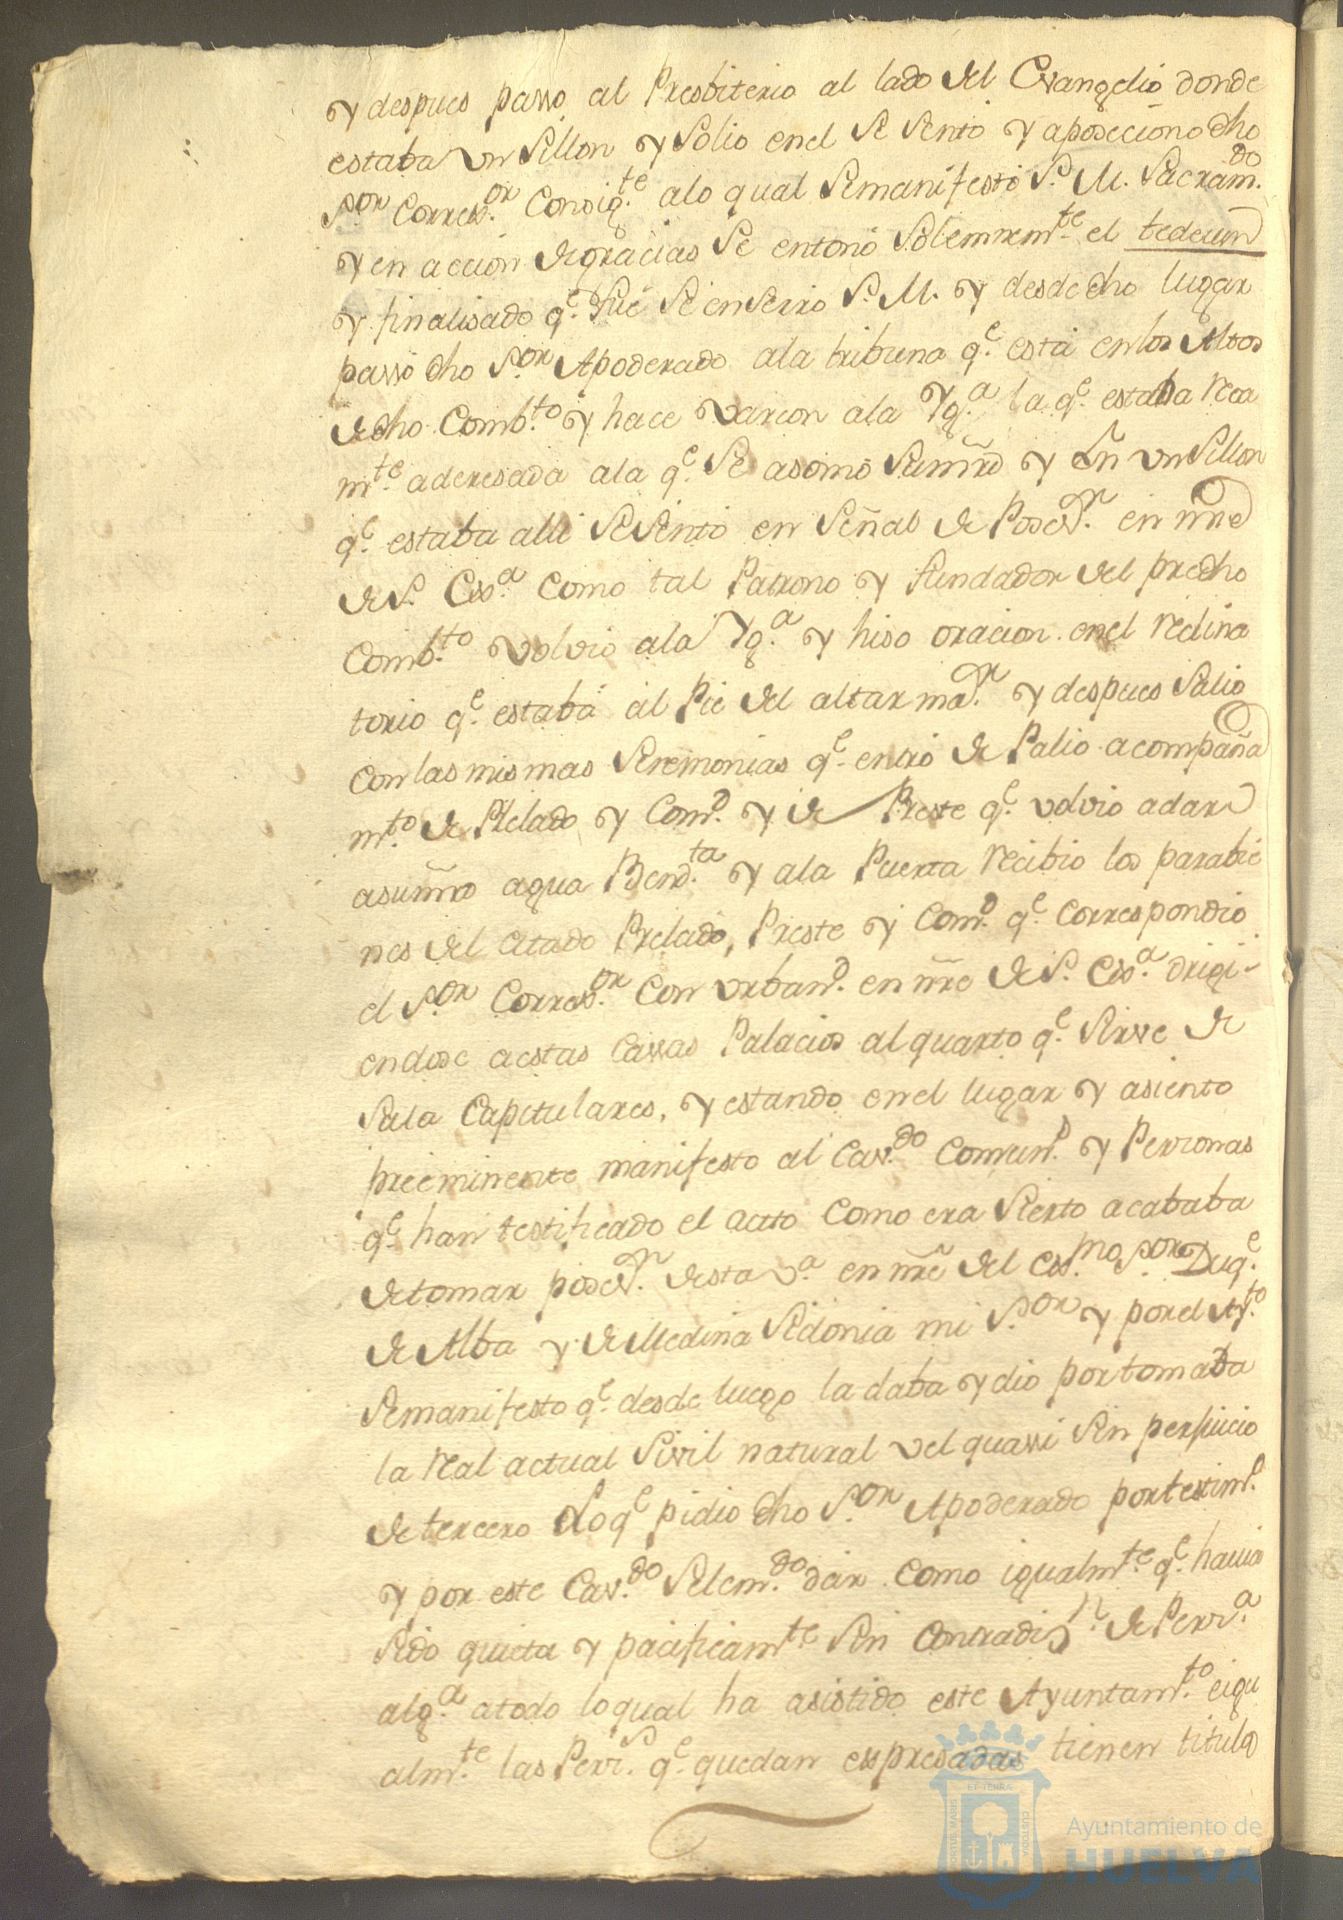 y despues passo al Presbiterio al lado del Evangelio donde
estaba un Sillon y Solio en el Se Sento y aposeciono dho
S.or Corres.or Consig.te alo qual Se manifesto S. M. Sacram.do
y en accion de gracias Se entonó Solemnem.te el tedeum
y finalisado q.e fué Se enserro S. M. y desde dho lugar
passó dho S.or Apoderado ala tribuna q.e está en los Altos
de dho Comb.to y hace varcon ala Yg.a la q.e estaba rica
m.te aderesada ala q.e Se asomó Sumrd y en un Sillon
q.e estaba alli Se Sento en Señal de Poses.n en nre
de S. Ex.a como tal Patrono y fundador del predho
Comb.to volvio ala Yg.a y hiso oracion en el reclina
torio q.e estaba al Pie del altar ma.r y despues Salio
con las mismas Seremonias q.e entró de Palio acompaña
m.to de Prelado y Com.d y de Preste q.e volvio a dar
a sumrd agua Bend.ta y ala Puerta recibio los parabie
nes del citado Prelado, Preste y Com.d q.e correspondio
el S.or Corres.or con urban.d en nre de S. Ex.a dirigi-
endose a estas Cassas Palacios al quarto q.e Sirve de
Sala Capitulares, y estando en el lugar y asiento
preeminente manifesto al Cav.do Comun.d y Perssonas
q.e han testificado el acto como era Sierto acababa
de tomar poses.n de sta V.a en nre del Ex.mo S.or Duq.e
de Alba y de Medina Sidonia mi S.or y por el Ay.to
Se manifesto q.e desde luego la daba y dio por tomada
la real actual Sivil natural vel quassi Sin perjuicio
de tercero Lo q.e pidio dho S.or Apoderado por testim.o
y por este Cav.do Se le m.do dar como igualm.te q.e havia
Sido quieta y pacificam.te Sin contradis.n de Perss.a
alg.a a todo lo qual ha asistido este Ayuntam.to e igu
alm.te las Perss.s q.e quedan expresadas tienen titulo
Ayuntamiento de
HUELVA